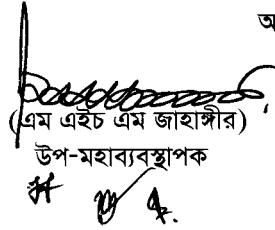 অ
(এম এইচ এম জাহাঙ্গীর)
উপ-মহাব্যবস্থাপক